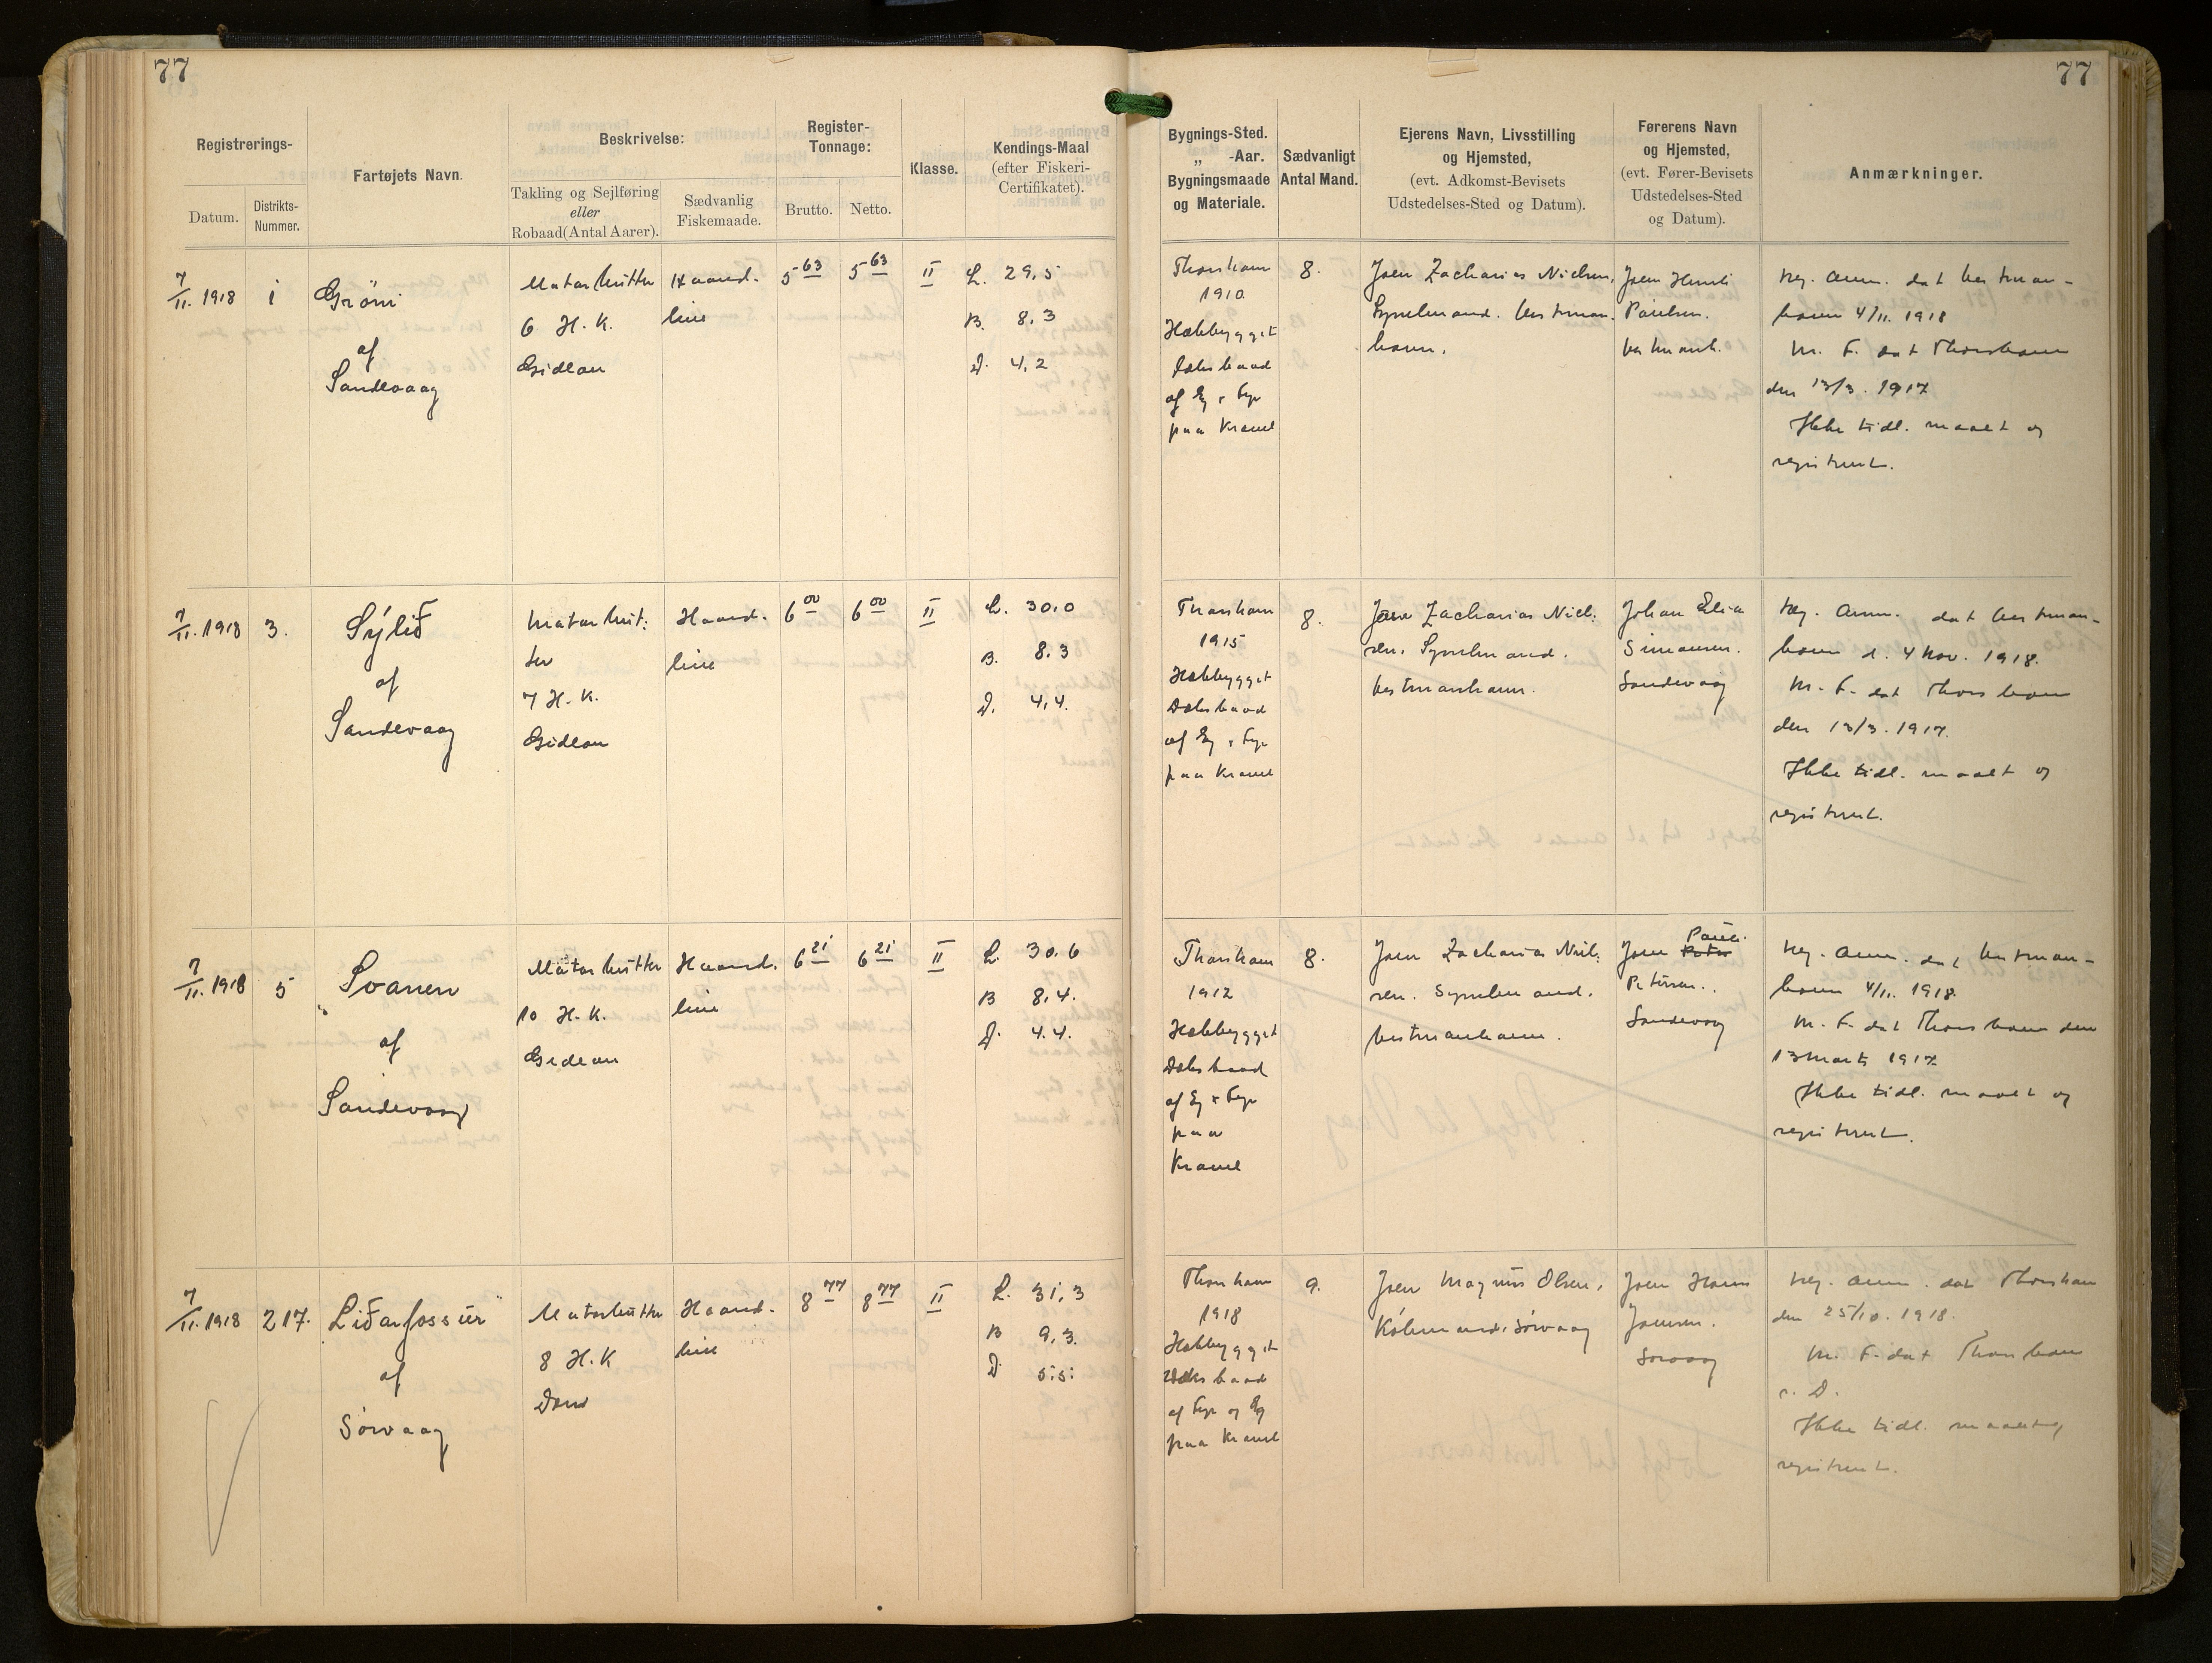 77
77
Registrerings-
Datum.
Distrikts-
Nummer.
Fartøjets Navn.
Beskrivelse:
Takling og Sejlføring
eller
Robaad(Antal Aarer).
Sædvanlig
Fiskemaade.
Register-
Tonnage:
Brutto.
Netto.
Klasse.
Kendings-Maal
(efter Fiskeri-
Certifikatet).
Bygnings-Sted.
„ -Aar.
Bygningsmaade
og Materiale.
Sædvanligt
Antal Mand.
Ejerens Navn, Livsstilling
og Hjemsted,
(evt. Adkomst-Bevisets
Udstedelses-Sted og Datum).
Førerens Navn
og Hjemsted,
(evt. Fører-Bevisets
Udstedelses-Sted
og Datum).
Anmærkninger.
7/11. 1918
1
Gróni
af
Sandevaag
Motorkutter
6 H.K.
Gideon
Haand-
line
5 63
5 63
II
L. 29,5
B. 8,3
D. 4,2
Thorshavn
1910
Hækbygget
Dæksbaad
af Eg & Fyr
paa Kravel
8.
Joen Zacharias Nielsen,
Sysselmand. Vestman-
havn.
Joen Henrik
Paulsen.
Vestmanh.
Reg. Anm. dat Vestman-
havn 4/11. 1918
M. F. dat Thorshavn
den 13/3. 1917
Ikke tidl. maalt og
registreret.
7/11. 1918
3.
Sýlið
af
Sandevaag
Motorkut-
ter
7 H.K.
Gideon
Haand-
line
6 00
6 00
II
L. 30,0
B. 8.3
D. 4,4.
Thorshavn
1915
Hækbygget
Dæksbaad
af Eg & Fyr
paa Kravel
8.
Joen Zacharias Niel-
sen, Sysselmand.
Vestmanhavn.
Johan Elias
Simonsen.
Sandevaag
Reg. Anm. dat Vestman-
havn d. 4 Nov. 1918.
M. F. dat Thorshavn
den 13/3. 1917.
Ikke tidl. maalt og
registreret.
7/11. 1918
5
Svanen
af
Sandevaag
Motorkutter
10 H.K.
Gideon
Haand-
line
6 21
6 21
II
L. 30.6
B 8,4.
D. 4.4.
Thorshavn
1912
Hækbygget
Dæksbaad
af Eg & Fyr
paa
Kravel
8.
Joen Zacharias Niel-
sen. Sysselmand.
Vestmanhavn.
Pauli
Joen Peter
Petersen.
Sandevaag
Reg. Anm. dat Vestman-
havn 4/11. 1918.
M. F. dat Thorshavn den
13 Marts 1917
Ikke tidl. maalt og
registreret.
7/11. 1918
217.
Liðarfossur
af
Sørvaag
Motorkutter
8 H.K
Dan
Haand-
line
8 77
8 77
II
L. 31,3
B 9,3.
D 5.5.
Thorshavn
1918
Hækbygget
Dæksbaad
af Fyr og Eg
paa Kravel
9.
Joen Magnus Olsen,
Købmand, Sørvaag
Joen Hans
Joensen.
Sørvaag
Reg. Anm. dat Thorshavn
den 25/10. 1918.
M. F. dat Thorshavn
s. D.
Ikke tidl. maalt og
registreret.